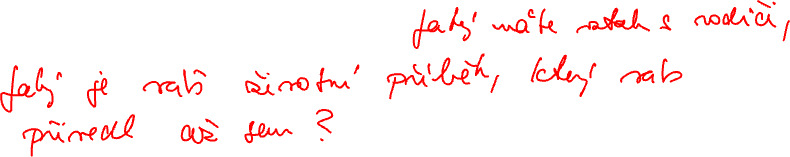 Jaký máte vztah s rodiči,
Jaký je váš životní příběh, který vás
přivedl až sem?